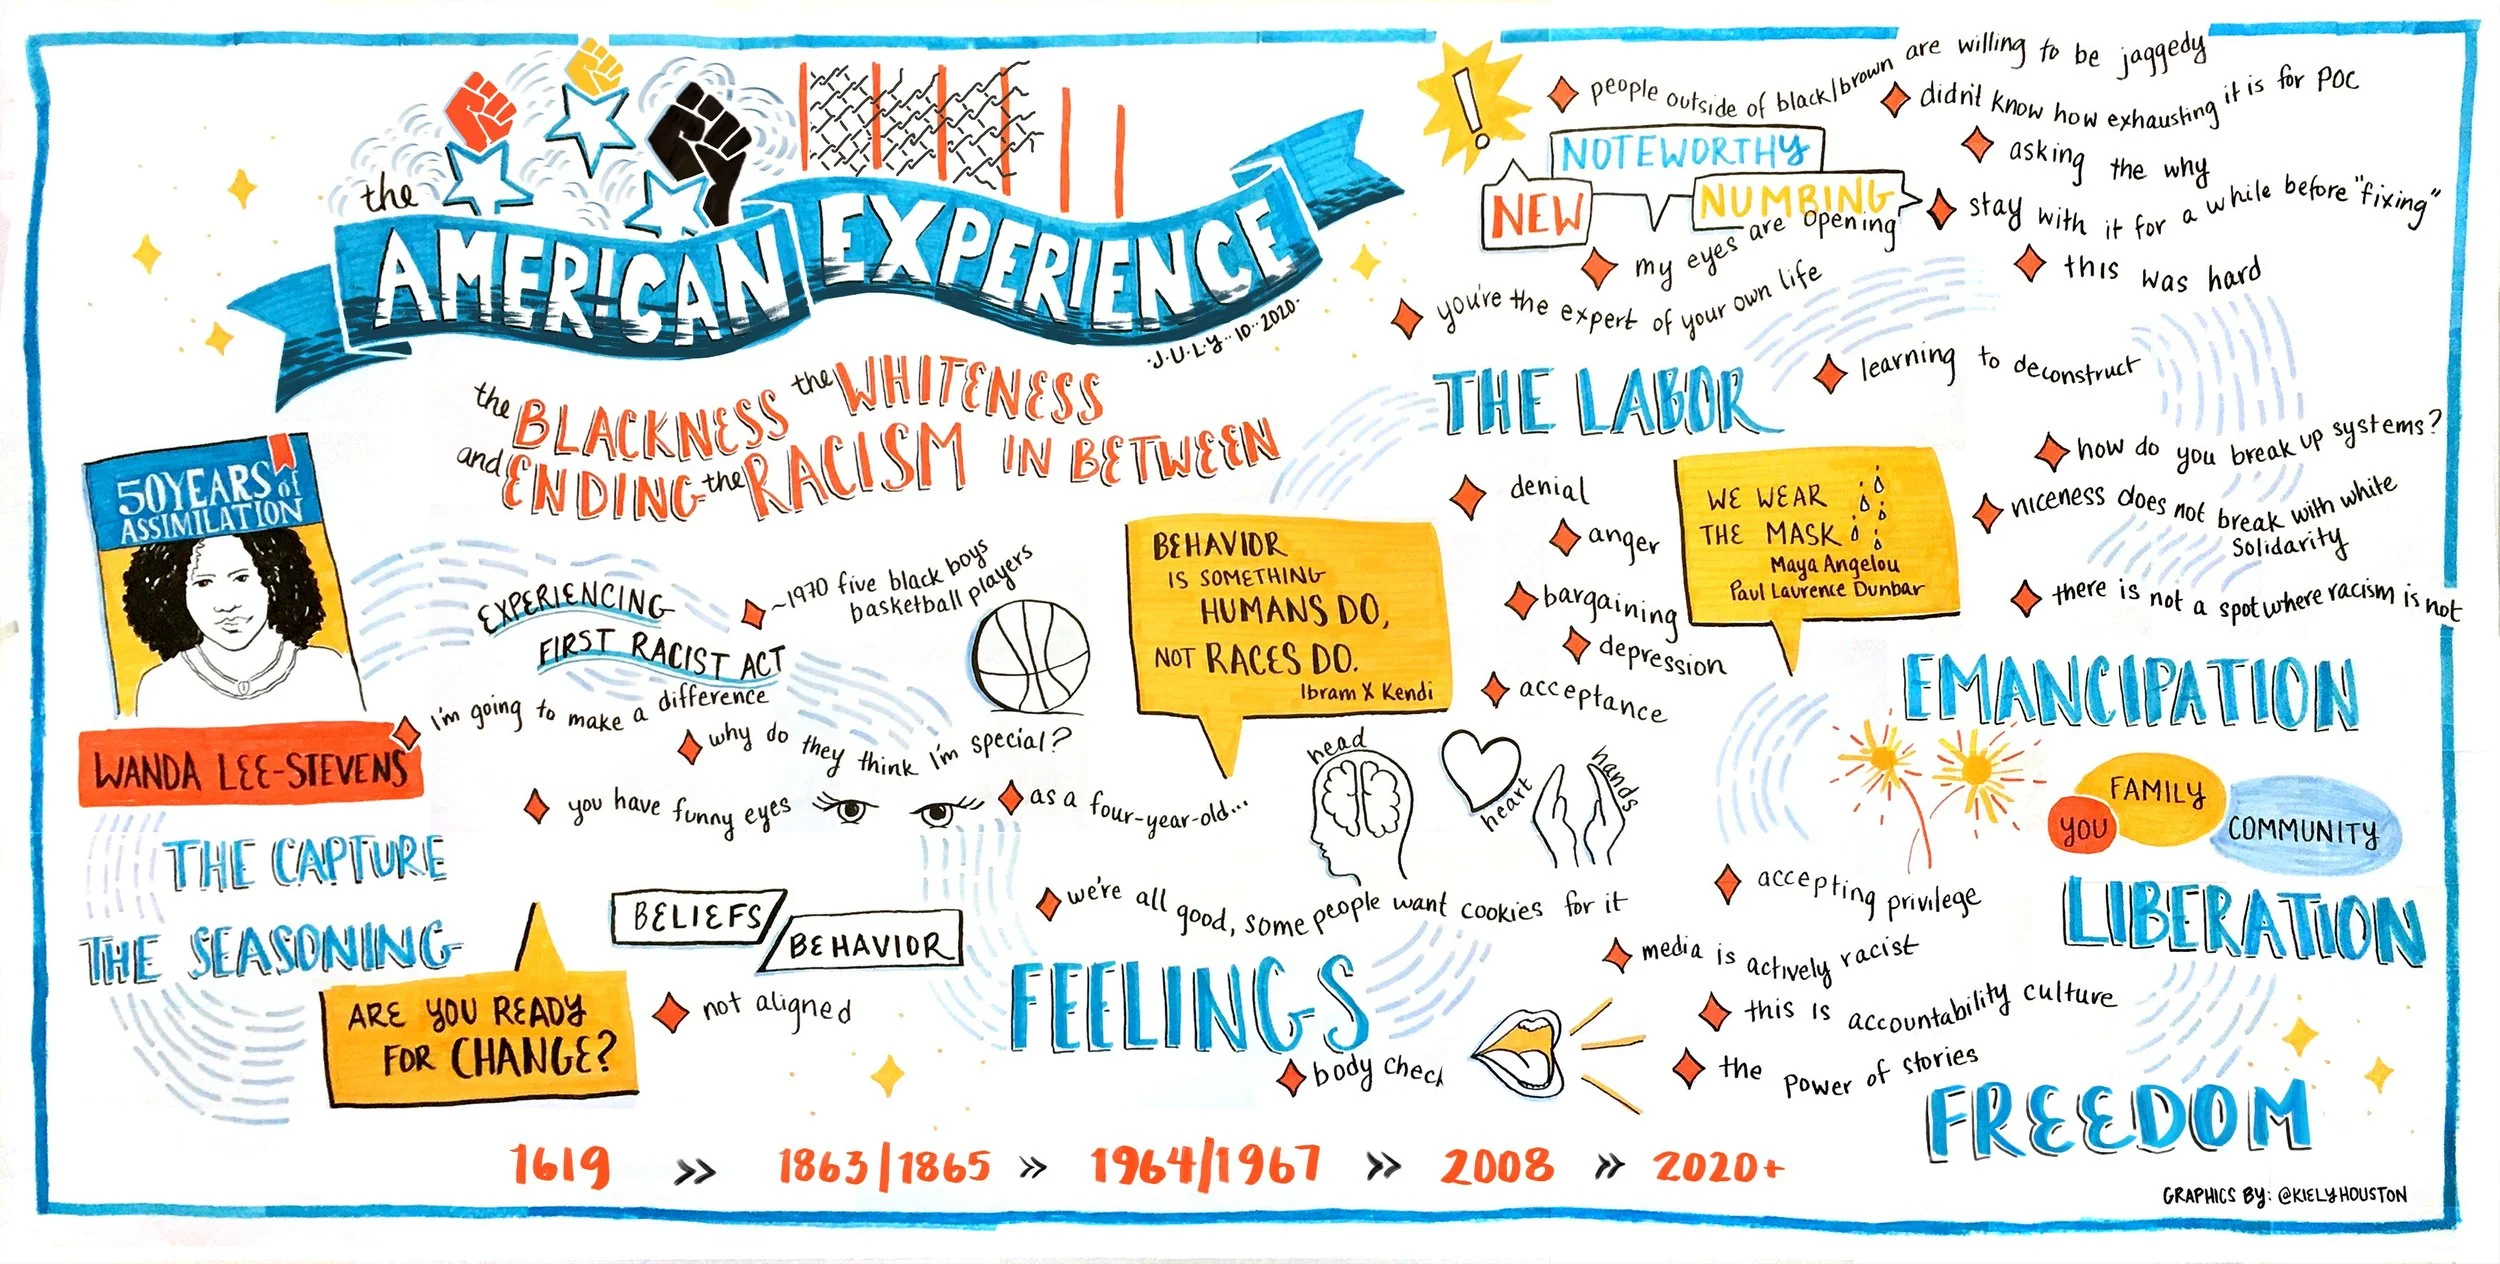 the
AMERICAN EXPERIENCE
·J·U·L·Y··10··2020·
the BLACKNESS the WHITENESS
and ENDING the RACISM IN BETWEEN
50 YEARS of
ASSIMILATION
WANDA LEE-STEVENS
THE CAPTURE
THE SEASONING
ARE YOU READY
FOR CHANGE?
EXPERIENCING
FIRST RACIST ACT
~1970 five black boys
basketball players
I'm going to make a difference
why do they think I'm special?
you have funny eyes
as a four-year-old...
BELIEFS
BEHAVIOR
not aligned
BEHAVIOR
IS SOMETHING
HUMANS DO,
NOT RACES DO.
Ibram X Kendi
head
heart
hands
we're all good, some people want cookies for it
FEELINGS
body check
!
NOTEWORTHY
NEW
NUMBING
people outside of black/brown are willing to be jaggedy
didn't know how exhausting it is for POC
asking the why
stay with it for a while before "fixing"
this was hard
my eyes are opening
you're the expert of your own life
THE LABOR
learning to deconstruct
denial
anger
bargaining
depression
acceptance
WE WEAR
THE MASK
Maya Angelou
Paul Laurence Dunbar
how do you break up systems?
niceness does not break with white
solidarity
there is not a spot where racism is not
EMANCIPATION
YOU
FAMILY
COMMUNITY
LIBERATION
accepting privilege
media is actively racist
this is accountability culture
the power of stories
FREEDOM
1619 >> 1863/1865 >> 1964/1967 >> 2008 >> 2020+
GRAPHICS BY: @KIELYHOUSTON